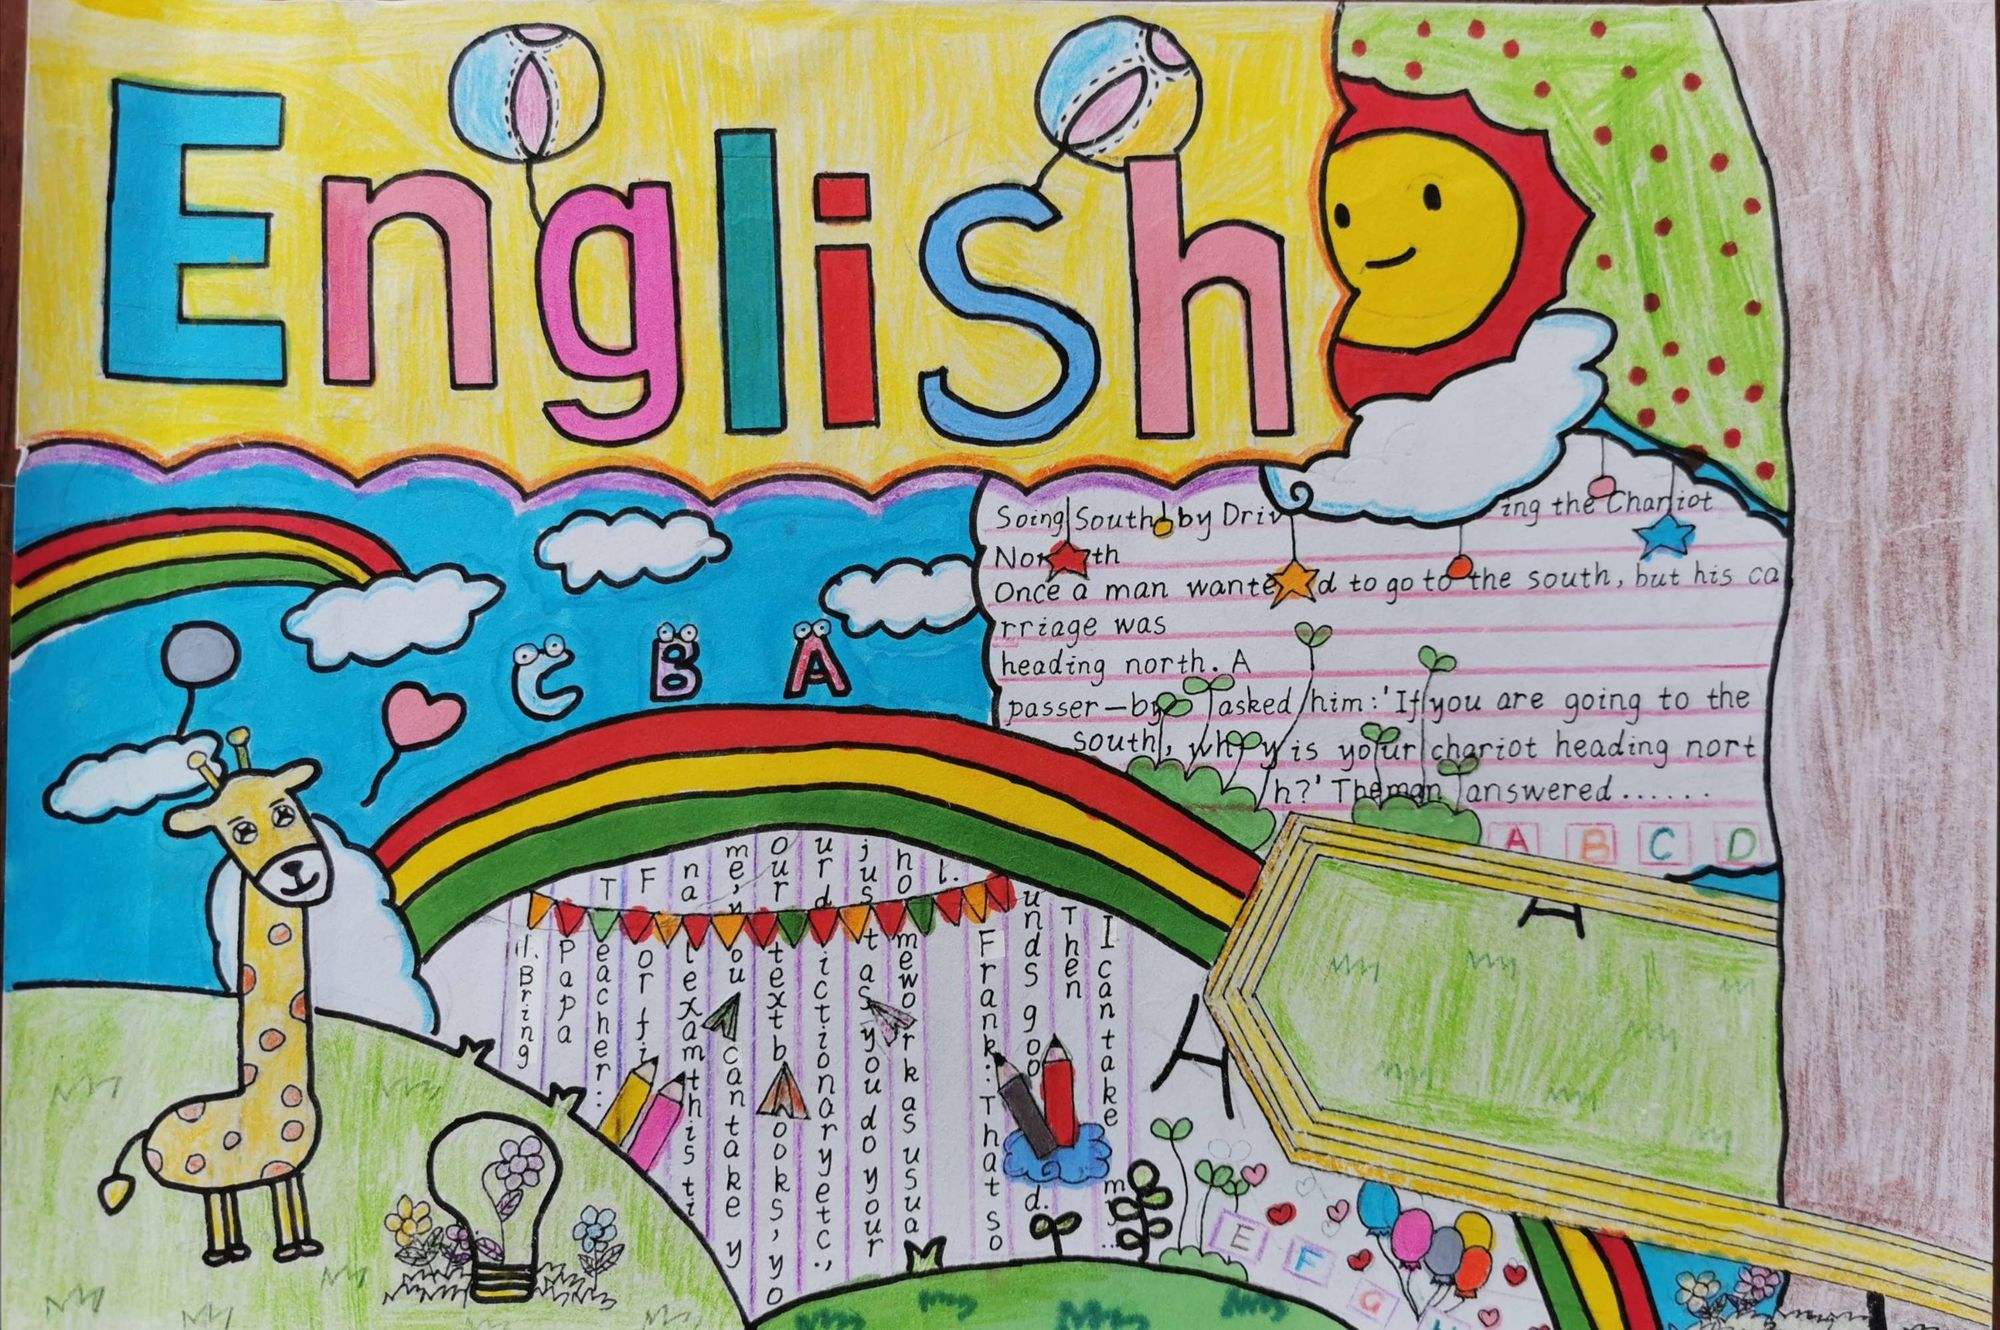 English
C B A
Soing South by Driving the Chariot
North
Once a man wanted to go to the south, but his ca
rriage was
heading north. A
passer-by asked him:'If you are going to the
south, why is your chariot heading nort
h?' The man answered......
A B C D
11. Bring
Papa
Teacher:..
For fi
nal exam this ti
me, you can take y
our textbooks, yo
ur dictionary etc.,
just as you do your
homework as usua
l.
Frank: That so
unds good.
Then
I can take my...
E F G